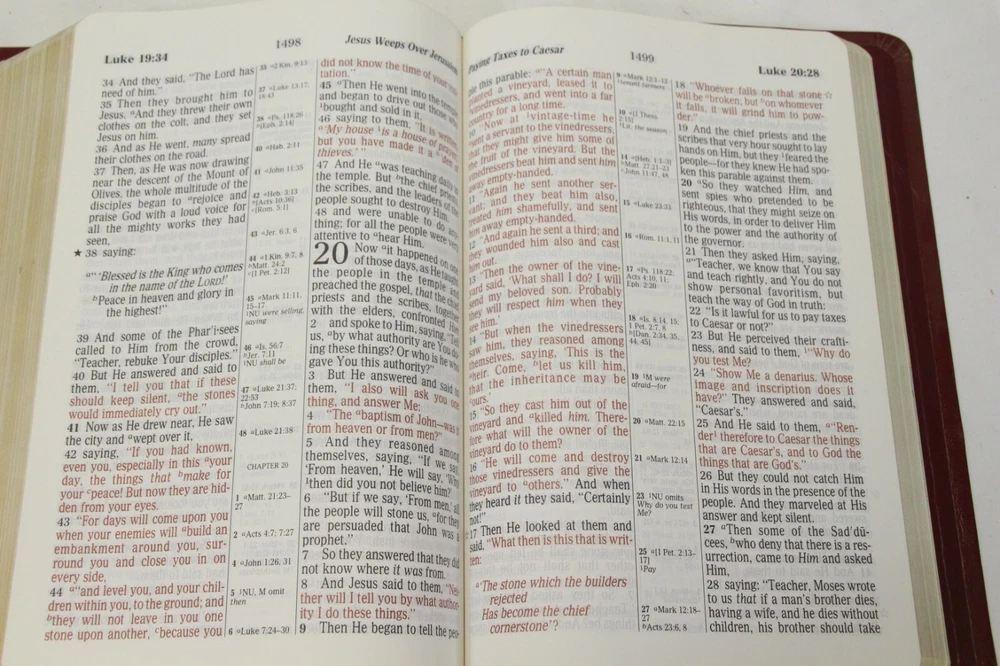 Luke 19:34
1498
Jesus Weeps Over Jerusalem
34 And they said, “The Lord has
need of him.”
35 Then they brought him to
Jesus. ᵃAnd they threw their own
clothes on the colt, and they set
Jesus on him.
36 And as He went, many spread
their clothes on the road.
37 Then, as He was now drawing
near the descent of the Mount of
Olives, the whole multitude of the
disciples began to ᵃrejoice and
praise God with a loud voice for
all the mighty works they had
seen,
★ 38 saying:
“ᵃ‘Blessed is the King who comes
in the name of the LORD!’
ᵇPeace in heaven and glory in
the highest!”
39 And some of the Phar′i·sees
called to Him from the crowd,
“Teacher, rebuke Your disciples.”
40 But He answered and said to
them, “I tell you that if these
should keep silent, ᵃthe stones
would immediately cry out.”
41 Now as He drew near, He saw
the city and ᵃwept over it,
42 saying, “If you had known,
even you, especially in this ᵃyour
day, the things that ᵇmake for
your ᶜpeace! But now they are hid-
den from your eyes.
43 “For days will come upon you
when your enemies will ᵃbuild an
embankment around you, sur-
round you and close you in on
every side,
44 ᵃ“and level you, and your chil-
dren within you, to the ground; and
ᵇthey will not leave in you one
stone upon another, ᶜbecause you
35 ᵃ2 Kin. 9:13
37 ᵃLuke 13:17;
18:43
38 ᵃPs. 118:26
ᵇ[Eph. 2:14]
40 ᵃHab. 2:11
41 ᵃJohn 11:35
42 ᵃHeb. 3:13
ᵇ[Acts 10:36]
ᶜ[Rom. 5:1]
43 ᵃJer. 6:3, 6
44 ᵃ1 Kin. 9:7, 8
ᵇMatt. 24:2
ᶜ[1 Pet. 2:12]
45 ᵃMark 11:11,
15–17
¹NU were selling,
saying
46 ᵃIs. 56:7
ᵇJer. 7:11
¹NU shall be
47 ᵃLuke 21:37;
22:53
ᵇJohn 7:19; 8:37
48 ᵃLuke 21:38
CHAPTER 20
1 ᵃMatt. 21:23–
27
2 ᵃActs 4:7; 7:27
4 ᵃJohn 1:26, 31
5 ¹NU, M omit
then
6 ᵃLuke 7:24–30
did not know the time of your visi-
tation.”
45 ᵃThen He went into the temple
and began to drive out those who
¹bought and sold in it,
46 saying to them, “It is written,
ᵃ‘My house ¹is a house of prayer,’
but you have made it a ᵇ‘den of
thieves.’ ”
47 And He ᵃwas teaching daily in
the temple. But ᵇthe chief priests,
the scribes, and the leaders of the
people sought to destroy Him,
48 and were unable to do any-
thing; for all the people were very
attentive to ᵃhear Him.
20 Now ᵃit happened on one
of those days, as He taught
the people in the temple and
preached the gospel, that the chief
priests and the scribes, together
with the elders, confronted Him
2 and spoke to Him, saying, “Tell
us, ᵃby what authority are You do-
ing these things? Or who is he who
gave You this authority?”
3 But He answered and said to
them, “I also will ask you one
thing, and answer Me:
4 “The ᵃbaptism of John—was it
from heaven or from men?”
5 And they reasoned among
themselves, saying, “If we say,
‘From heaven,’ He will say, ‘Why
¹then did you not believe him?’
6 “But if we say, ‘From men,’ all
the people will stone us, ᵃfor they
are persuaded that John was a
prophet.”
7 So they answered that they did
not know where it was from.
8 And Jesus said to them, “Nei-
ther will I tell you by what author-
ity I do these things.”
9 Then He began to tell the peo-
Paying Taxes to Caesar
1499
Luke 20:28
ple this parable: ᵃ“A certain man
planted a vineyard, leased it to
vinedressers, and went into a far
country for a long time.
10 “Now at ¹vintage-time he
ᵃsent a servant to the vinedressers,
that they might give him some of
the fruit of the vineyard. But the
vinedressers beat him and sent him
away empty-handed.
11 “Again he sent another ser-
vant; and they beat him also,
treated him shamefully, and sent
him away empty-handed.
12 “And again he sent a third; and
they wounded him also and cast
him out.
13 “Then the owner of the vine-
yard said, ‘What shall I do? I will
send my beloved son. Probably
they will respect him when they
see him.’
14 “But when the vinedressers
saw him, they reasoned among
themselves, saying, ‘This is the
ᵃheir. Come, ᵇlet us kill him,
that the inheritance may be
ᶜours.’
15 “So they cast him out of the
vineyard and ᵃkilled him. There-
fore what will the owner of the
vineyard do to them?
16 “He will come and destroy
those vinedressers and give the
vineyard to ᵃothers.” And when
they heard it they said, “Certainly
not!”
17 Then He looked at them and
said, “What then is this that is writ-
ten:
ᵃ‘The stone which the builders
rejected
Has become the chief
cornerstone’?
9 ᵃMark 12:1–12
10 ᵃ[1 Thess.
2:15]
¹Lit. the season
14 ᵃ[Heb. 1:1–3]
ᵇMatt. 27:21–23
ᶜJohn 11:47, 48
15 ᵃLuke 23:33
16 ᵃRom. 11:1, 11
17 ᵃPs. 118:22;
Acts 4:10, 11;
Eph. 2:20
18 ᵃIs. 8:14, 15;
1 Pet. 2:7, 8
ᵇ[Dan. 2:34, 35,
44, 45]
19 ¹M were
afraid—for
20 ᵃMatt. 22:15
21 ᵃMark 12:14
23 ¹NU omits
Why do you test
Me?
25 ᵃ[1 Pet. 2:13–
17]
¹Pay
27 ᵃMark 12:18–
27
ᵇActs 23:6, 8
18 “Whoever falls on that stone ☆
will be ᵃbroken, but ᵇon whomever
it falls, it will grind him to pow-
der.”
19 And the chief priests and the
scribes that very hour sought to lay
hands on Him, but they ¹feared the
people—for they knew He had spo-
ken this parable against them.
20 ᵃSo they watched Him, and
sent spies who pretended to be
righteous, that they might seize on
His words, in order to deliver Him
to the power and the authority of
the governor.
21 Then they asked Him, saying,
ᵃ“Teacher, we know that You say
and teach rightly, and You do not
show personal favoritism, but
teach the way of God in truth:
22 “Is it lawful for us to pay taxes
to Caesar or not?”
23 But He perceived their crafti-
ness, and said to them, ¹“Why do
you test Me?
24 “Show Me a denarius. Whose
image and inscription does it
have?” They answered and said,
“Caesar’s.”
25 And He said to them, ᵃ“Ren-
der¹ therefore to Caesar the things
that are Caesar’s, and to God the
things that are God’s.”
26 But they could not catch Him
in His words in the presence of the
people. And they marveled at His
answer and kept silent.
27 ᵃThen some of the Sad′dū-
cees, ᵇwho deny that there is a res-
urrection, came to Him and asked
Him,
28 saying: “Teacher, Moses wrote
to us that if a man’s brother dies,
having a wife, and he dies without
children, his brother should take